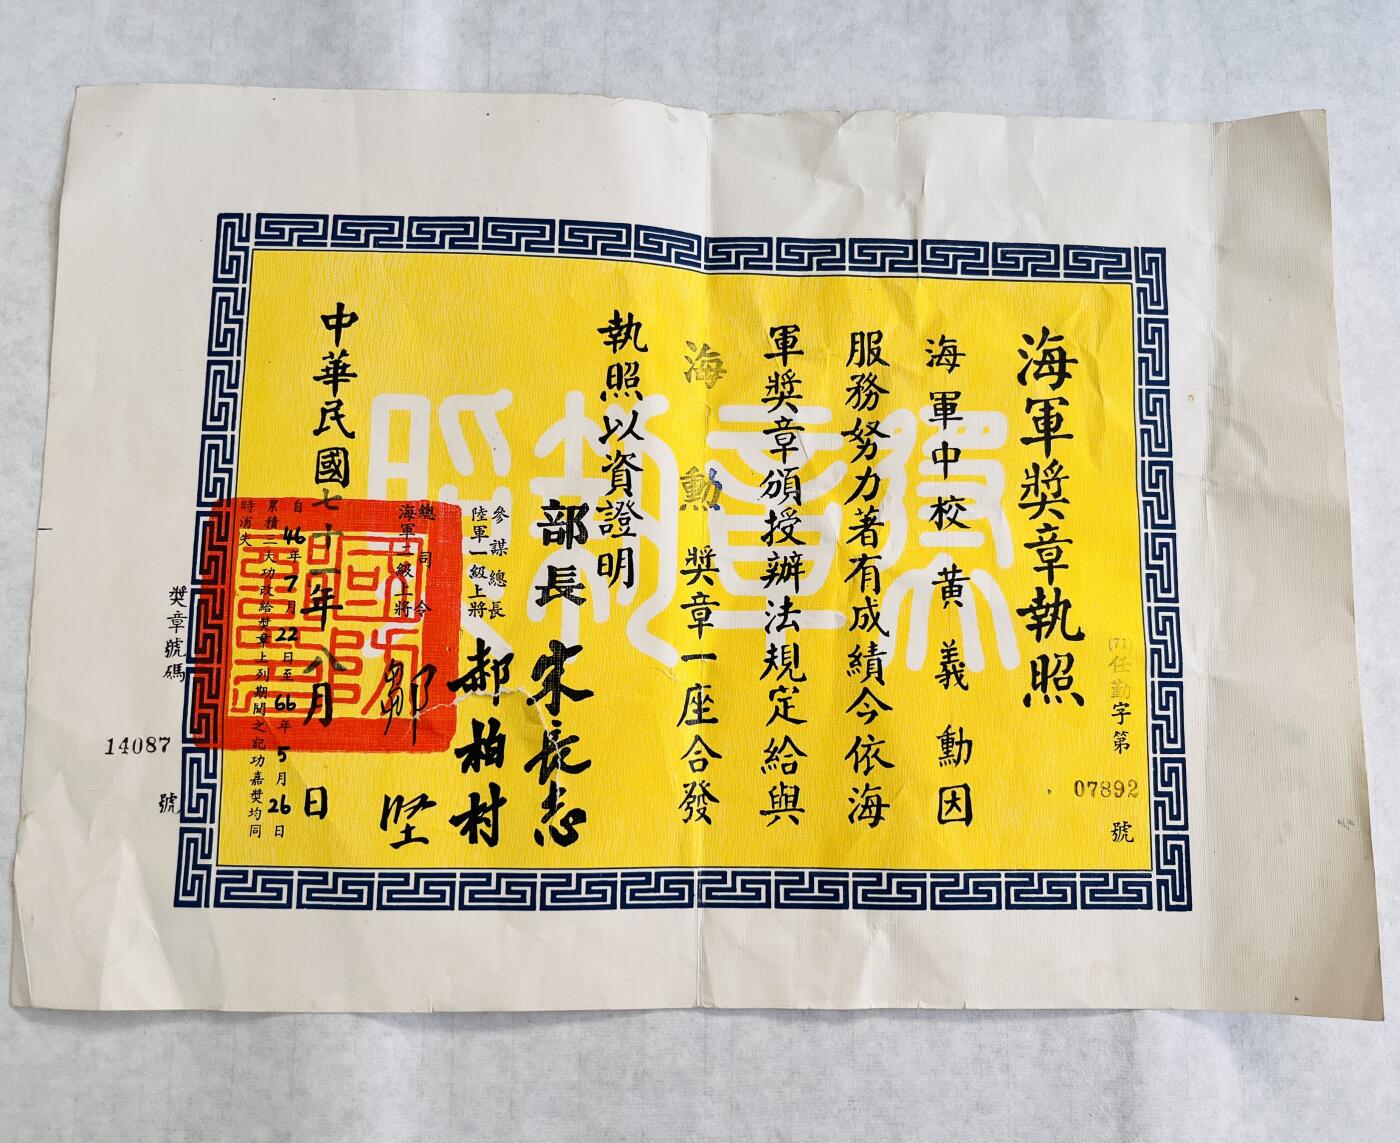 海軍獎章執照
(71)任勤字第07892號
海軍中校黃義勳因
服務努力著有成績今依海
軍獎章頒授辦法規定給與
海勳獎章一座合發
執照以資證明
部長宋長志
參謀總長
陸軍一級上將
郝柏村
總司令
海軍二級上將
鄒堅
中華民國七十一年八月日
自46年7月22日至66年5月26日
累積三大功改給獎章上列期間之記功嘉獎均同
時消失
獎章號碼14087號
獎章執照